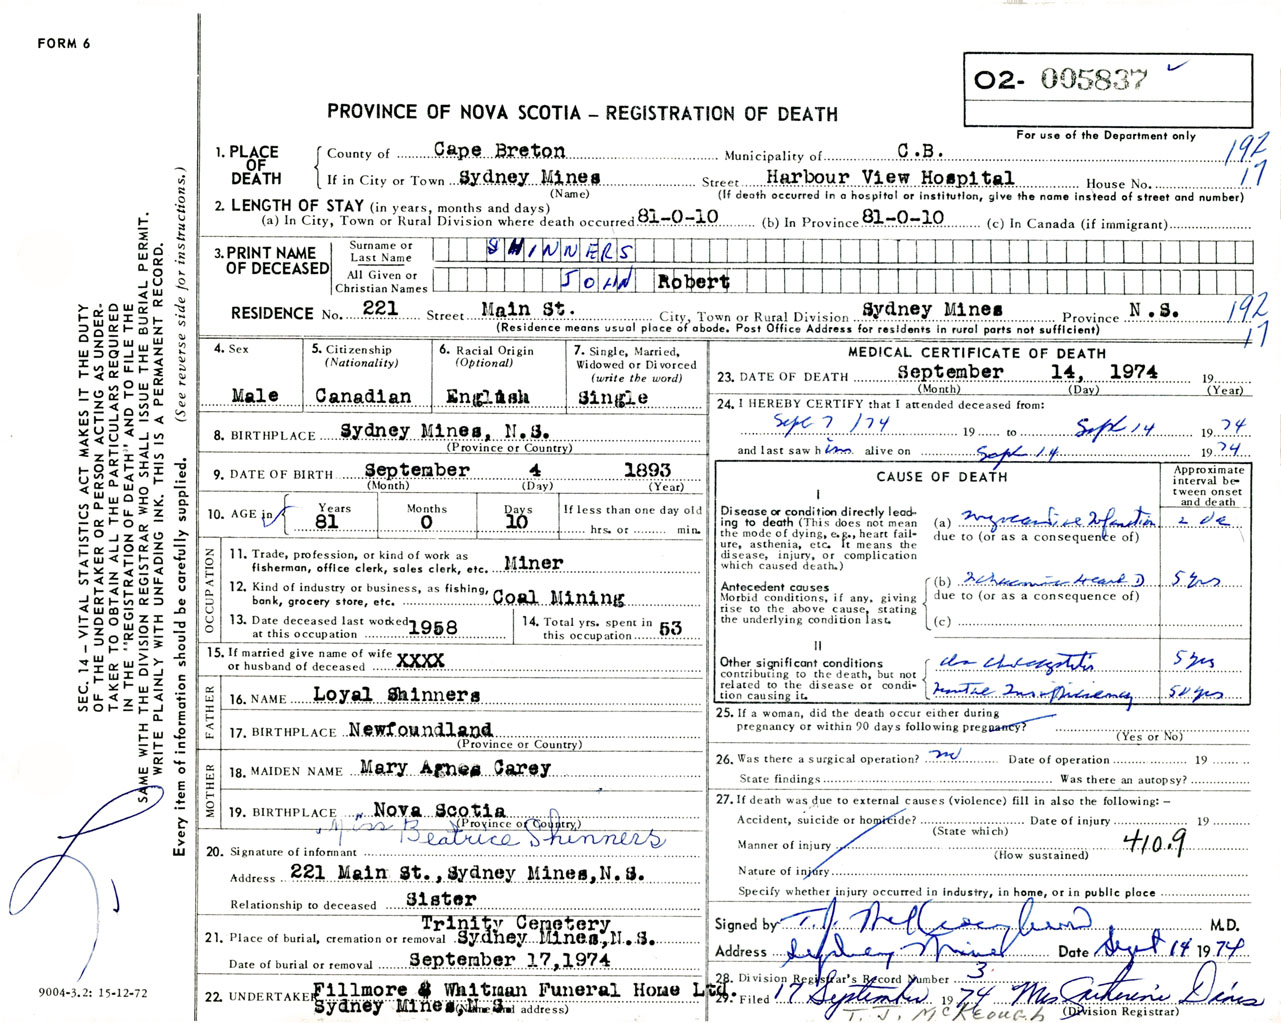 FORM 6
O2- 005837
For use of the Department only
PROVINCE OF NOVA SCOTIA – REGISTRATION OF DEATH
1. PLACE OF DEATH
County of Cape Breton Municipality of C.B. 192
If in City or Town Sydney Mines Street Harbour View Hospital House No. 17
(Name) (If death occurred in a hospital or institution, give the name instead of street and number)
2. LENGTH OF STAY (in years, months and days)
(a) In City, Town or Rural Division where death occurred 81-0-10 (b) In Province 81-0-10 (c) In Canada (if immigrant)
3. PRINT NAME OF DECEASED
Surname or Last Name SHINNERS
All Given or Christian Names JOHN Robert
RESIDENCE No. 221 Street Main St. City, Town or Rural Division Sydney Mines Province N.S. 192
(Residence means usual place of abode. Post Office Address for residents in rural parts not sufficient) 17
4. Sex Male
5. Citizenship (Nationality) Canadian
6. Racial Origin (Optional) English
7. Single, Married, Widowed or Divorced (write the word) Single
8. BIRTHPLACE Sydney Mines, N.S.
(Province or Country)
9. DATE OF BIRTH September 4 1893
(Month) (Day) (Year)
10. AGE in Years 81 Months 0 Days 10 If less than one day old hrs. or min.
OCCUPATION
11. Trade, profession, or kind of work as fisherman, office clerk, sales clerk, etc. Miner
12. Kind of industry or business, as fishing, bank, grocery store, etc. Coal Mining
13. Date deceased last worked at this occupation 1958
14. Total yrs. spent in this occupation 53
15. If married give name of wife or husband of deceased XXXX
FATHER
16. NAME Loyal Shinners
17. BIRTHPLACE Newfoundland
(Province or Country)
MOTHER
18. MAIDEN NAME Mary Agnes Carey
19. BIRTHPLACE Nova Scotia
(Province or Country)
20. Signature of informant Miss Beatrice Shinners
Address 221 Main St., Sydney Mines, N.S.
Relationship to deceased Sister
Trinity Cemetery
21. Place of burial, cremation or removal Sydney Mines, N.S.
Date of burial or removal September 17, 1974
22. UNDERTAKER Fillmore & Whitman Funeral Home Ltd.
Sydney Mines, N.S. (Name and address)
MEDICAL CERTIFICATE OF DEATH
23. DATE OF DEATH September 14, 1974 19
(Month) (Day) (Year)
24. I HEREBY CERTIFY that I attended deceased from:
Sept 7 /74 19 to Sept 14 1974
and last saw him alive on Sept 14 1974
CAUSE OF DEATH
Approximate interval between onset and death
I
Disease or condition directly leading to death (This does not mean the mode of dying, e.g., heart failure, asthenia, etc. It means the disease, injury, or complication which caused death.)
(a) Infarction 2
due to (or as a consequence of)
Antecedent causes
Morbid conditions, if any, giving rise to the above cause, stating the underlying condition last.
(b) Heart D 5 yrs
due to (or as a consequence of)
(c)
II
Other significant conditions contributing to the death, but not related to the disease or condition causing it.
5 yrs
Insufficiency yrs
25. If a woman, did the death occur either during pregnancy or within 90 days following pregnancy?
(Yes or No)
26. Was there a surgical operation? no Date of operation 19
State findings Was there an autopsy?
27. If death was due to external causes (violence) fill in also the following: –
Accident, suicide or homicide? Date of injury 19
(State which)
Manner of injury 410.9
(How sustained)
Nature of injury
Specify whether injury occurred in industry, in home, or in public place
Signed by T. J. M.D.
Address Sydney Mines Date Sept 14 1974
28. Division Registrar's Record Number 3
29. Filed 17 September 1974 Mrs Catherine Davis
(Division Registrar)
T. J. McKEOUGH
SEC. 14 – VITAL STATISTICS ACT MAKES IT THE DUTY
OF THE UNDERTAKER OR PERSON ACTING AS UNDER-
TAKER TO OBTAIN ALL THE PARTICULARS REQUIRED
IN THE "REGISTRATION OF DEATH" AND TO FILE THE
SAME WITH THE DIVISION REGISTRAR WHO SHALL ISSUE THE BURIAL PERMIT.
WRITE PLAINLY WITH UNFADING INK. THIS IS A PERMANENT RECORD.
Every item of information should be carefully supplied. (See reverse side for instructions.)
9004-3.2: 15-12-72